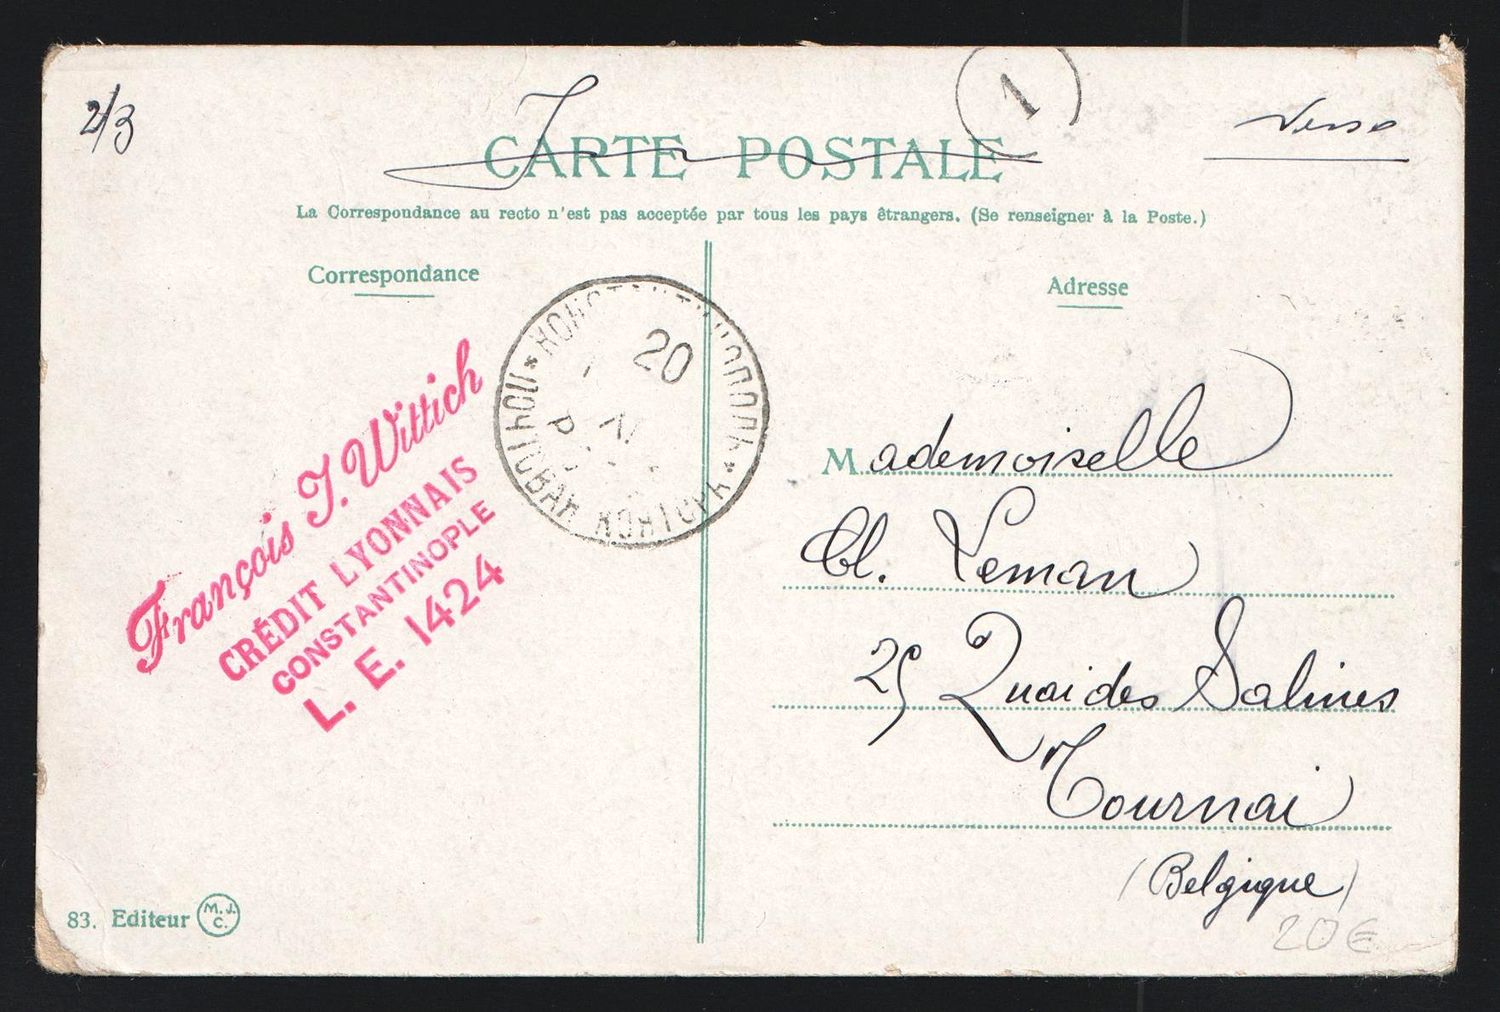 2/3
1
Verso
CARTE POSTALE
La Correspondance au recto n'est pas acceptée par tous les pays étrangers. (Se renseigner à la Poste.)
Correspondance
Adresse
20
François J. Wittich
CRÉDIT LYONNAIS
CONSTANTINOPLE
L. E. 1424
Mademoiselle
Cl. Leman
25 Quai des Salines
Tournai
(Belgique)
20€
83. Editeur M. J. C.